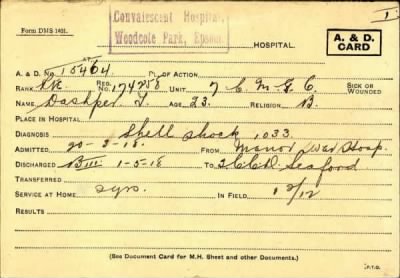 Convalescent Hospital,
Woodcote Park, Epsom.
1
Form DMS 1401.
HOSPITAL.
A. & D. CARD
A. & D. No. 15464 PL. OF ACTION
RANK Pte REG. No. 174258 UNIT 7 C.M.G.C SICK OR WOUNDED
NAME Dashper AGE 23. RELIGION B.
PLACE IN HOSPITAL
DIAGNOSIS Shell shock 1033.
ADMITTED 20-3-18. FROM Manor War Hosp.
DISCHARGED BIII 1-5-18 TO Seaford
TRANSFERRED
SERVICE AT HOME IN FIELD 1 2/12
RESULTS
(See Document Card for M.H. Sheet and other Documents.)
[P.T.O.